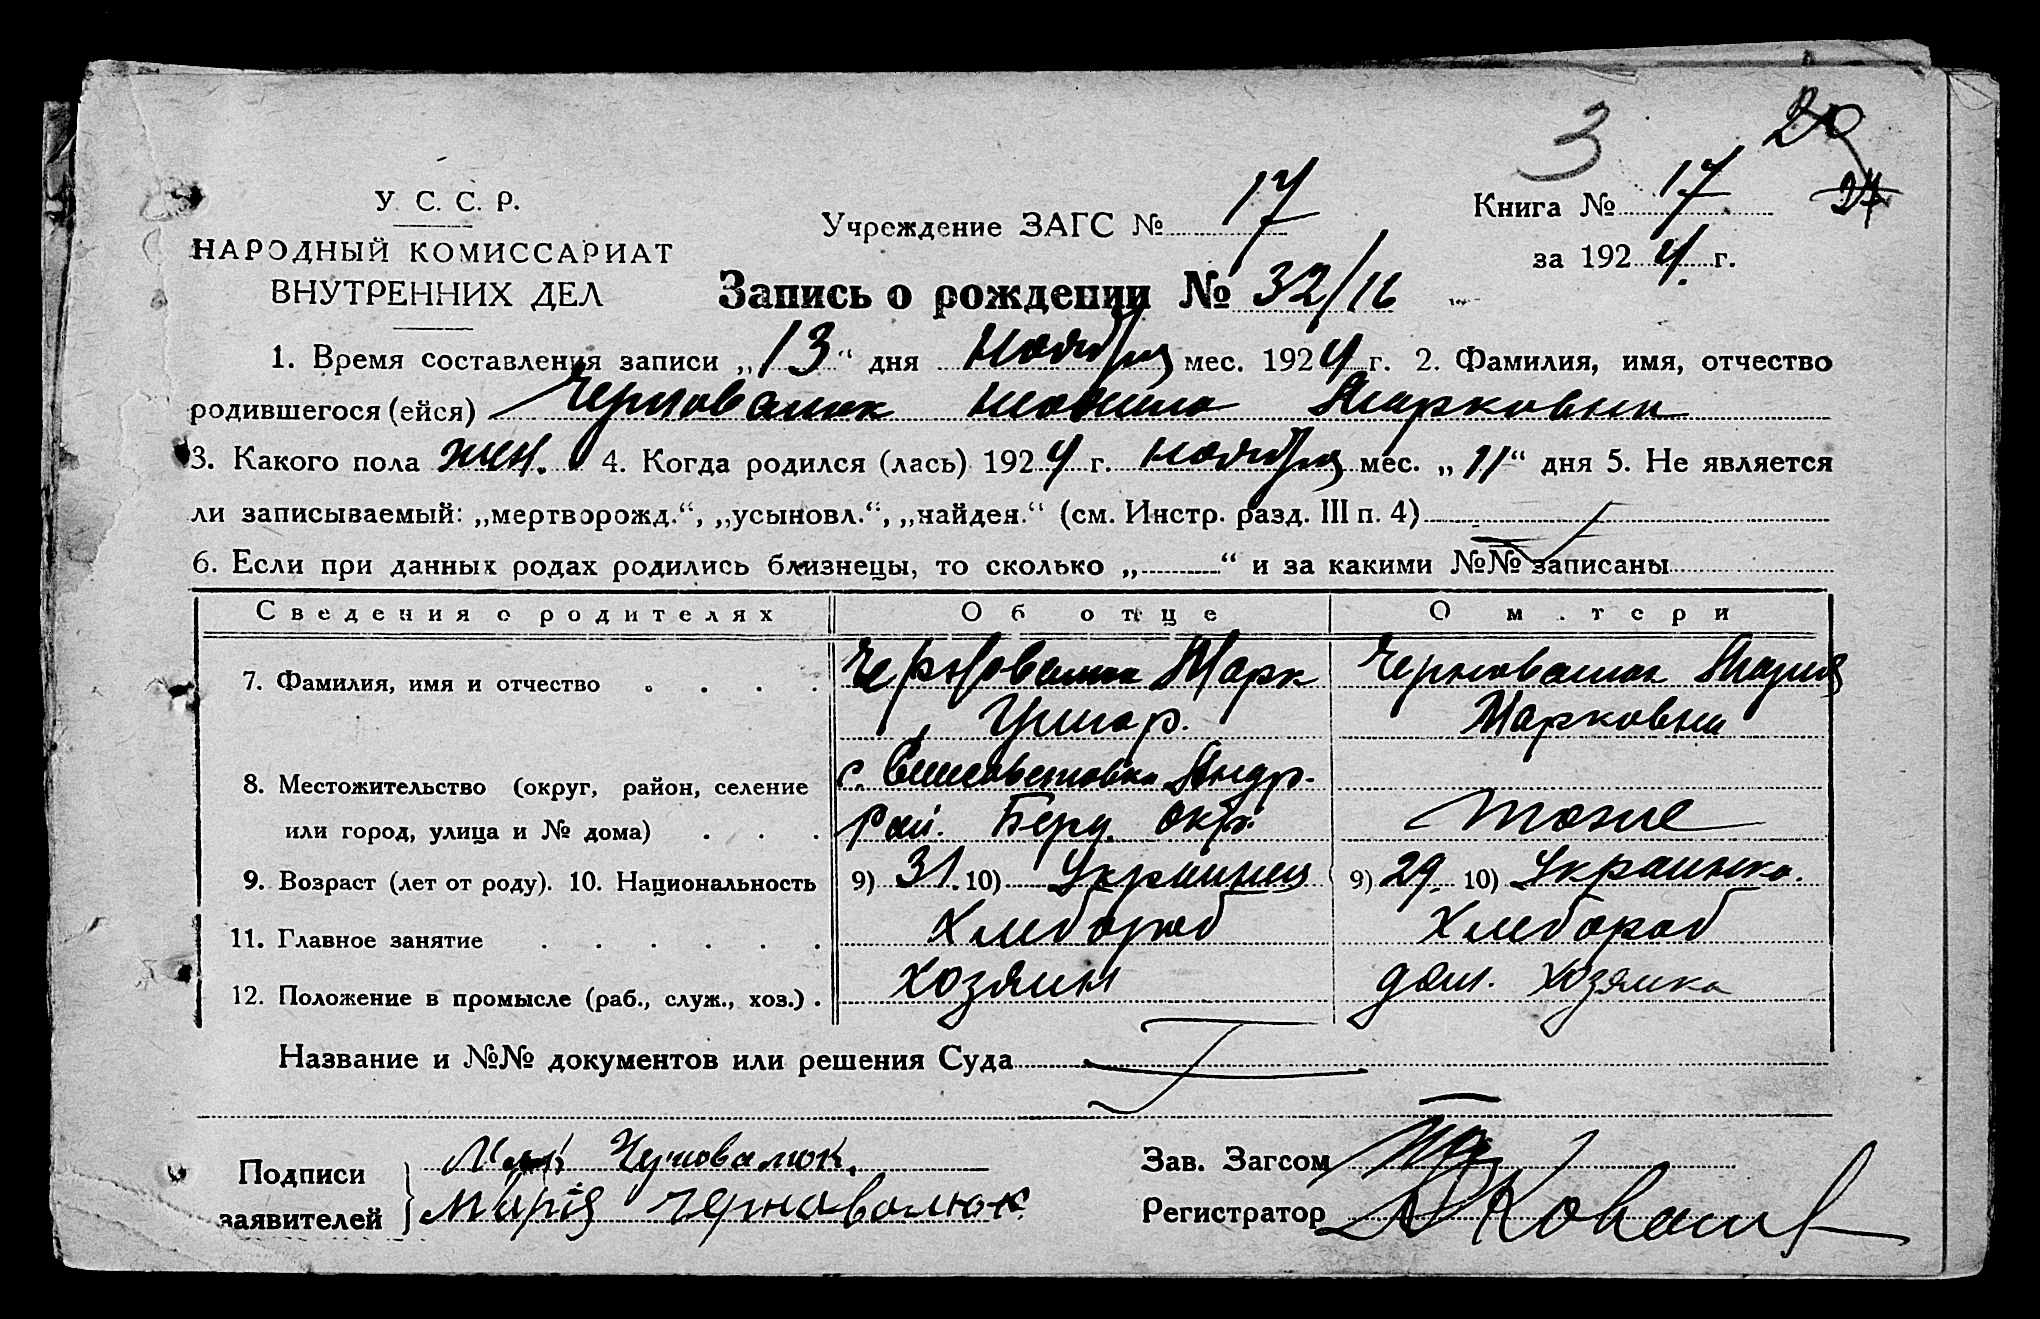 3 20
У. С. С. Р.
НАРОДНЫЙ КОМИССАРИАТ
ВНУТРЕННИХ ДЕЛ
Учреждение ЗАГС № 17
Книга № 17
за 1924 г.
Запись о рождении № 32/16
1. Время составления записи „13“ дня Ноября мес. 1924 г. 2. Фамилия, имя, отчество
родившегося (ейся) Черновалюк Марковны
3. Какого пола жен. 4. Когда родился (лась) 1924 г. ноября мес. „11“ дня 5. Не является
ли записываемый: „мертворожд.“, „усыновл.“, „найден.“ (см. Инстр. разд. III п. 4)
6. Если при данных родах родились близнецы, то сколько „ “ и за какими №№ записаны
Сведения о родителях Об отце О м.тери
7. Фамилия, имя и отчество Черновалюк Марк Черновалюк Мария
Марковна
8. Местожительство (округ, район, селение с. Елисаветовка Андр.
или город, улица и № дома) рай. Берд. окр. тоже
9. Возраст (лет от роду). 10. Национальность 9) 31. 10) Украинец 9) 29. 10) Украинка.
11. Главное занятие Хлебороб Хлебороб
12. Положение в промысле (раб., служ., хоз.) хозяин дом. хозяйка
Название и №№ документов или решения Суда
Подписи Черновалюк.
заявителей Марія Черновалюк
Зав. Загсом
Регистратор